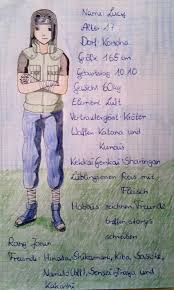 Name: Lucy
Alter 17
Dorf Konoha
Größe 165 cm
Geburtstag 10.10
Gewicht 60kg
Element Luft
Vertrauter geist Köter
Waffen Katana und
Kunais
Kekkai Genkai Sharingan
Lieblingsessen Reis mit
Fleisch
Hobbys zeichnen, Freunde
treffen, storys
schreiben
Rang Jonin
Freunde: Hinata, Shikamaru, Kiba, Sasuke,
Naruto und
Kakashi